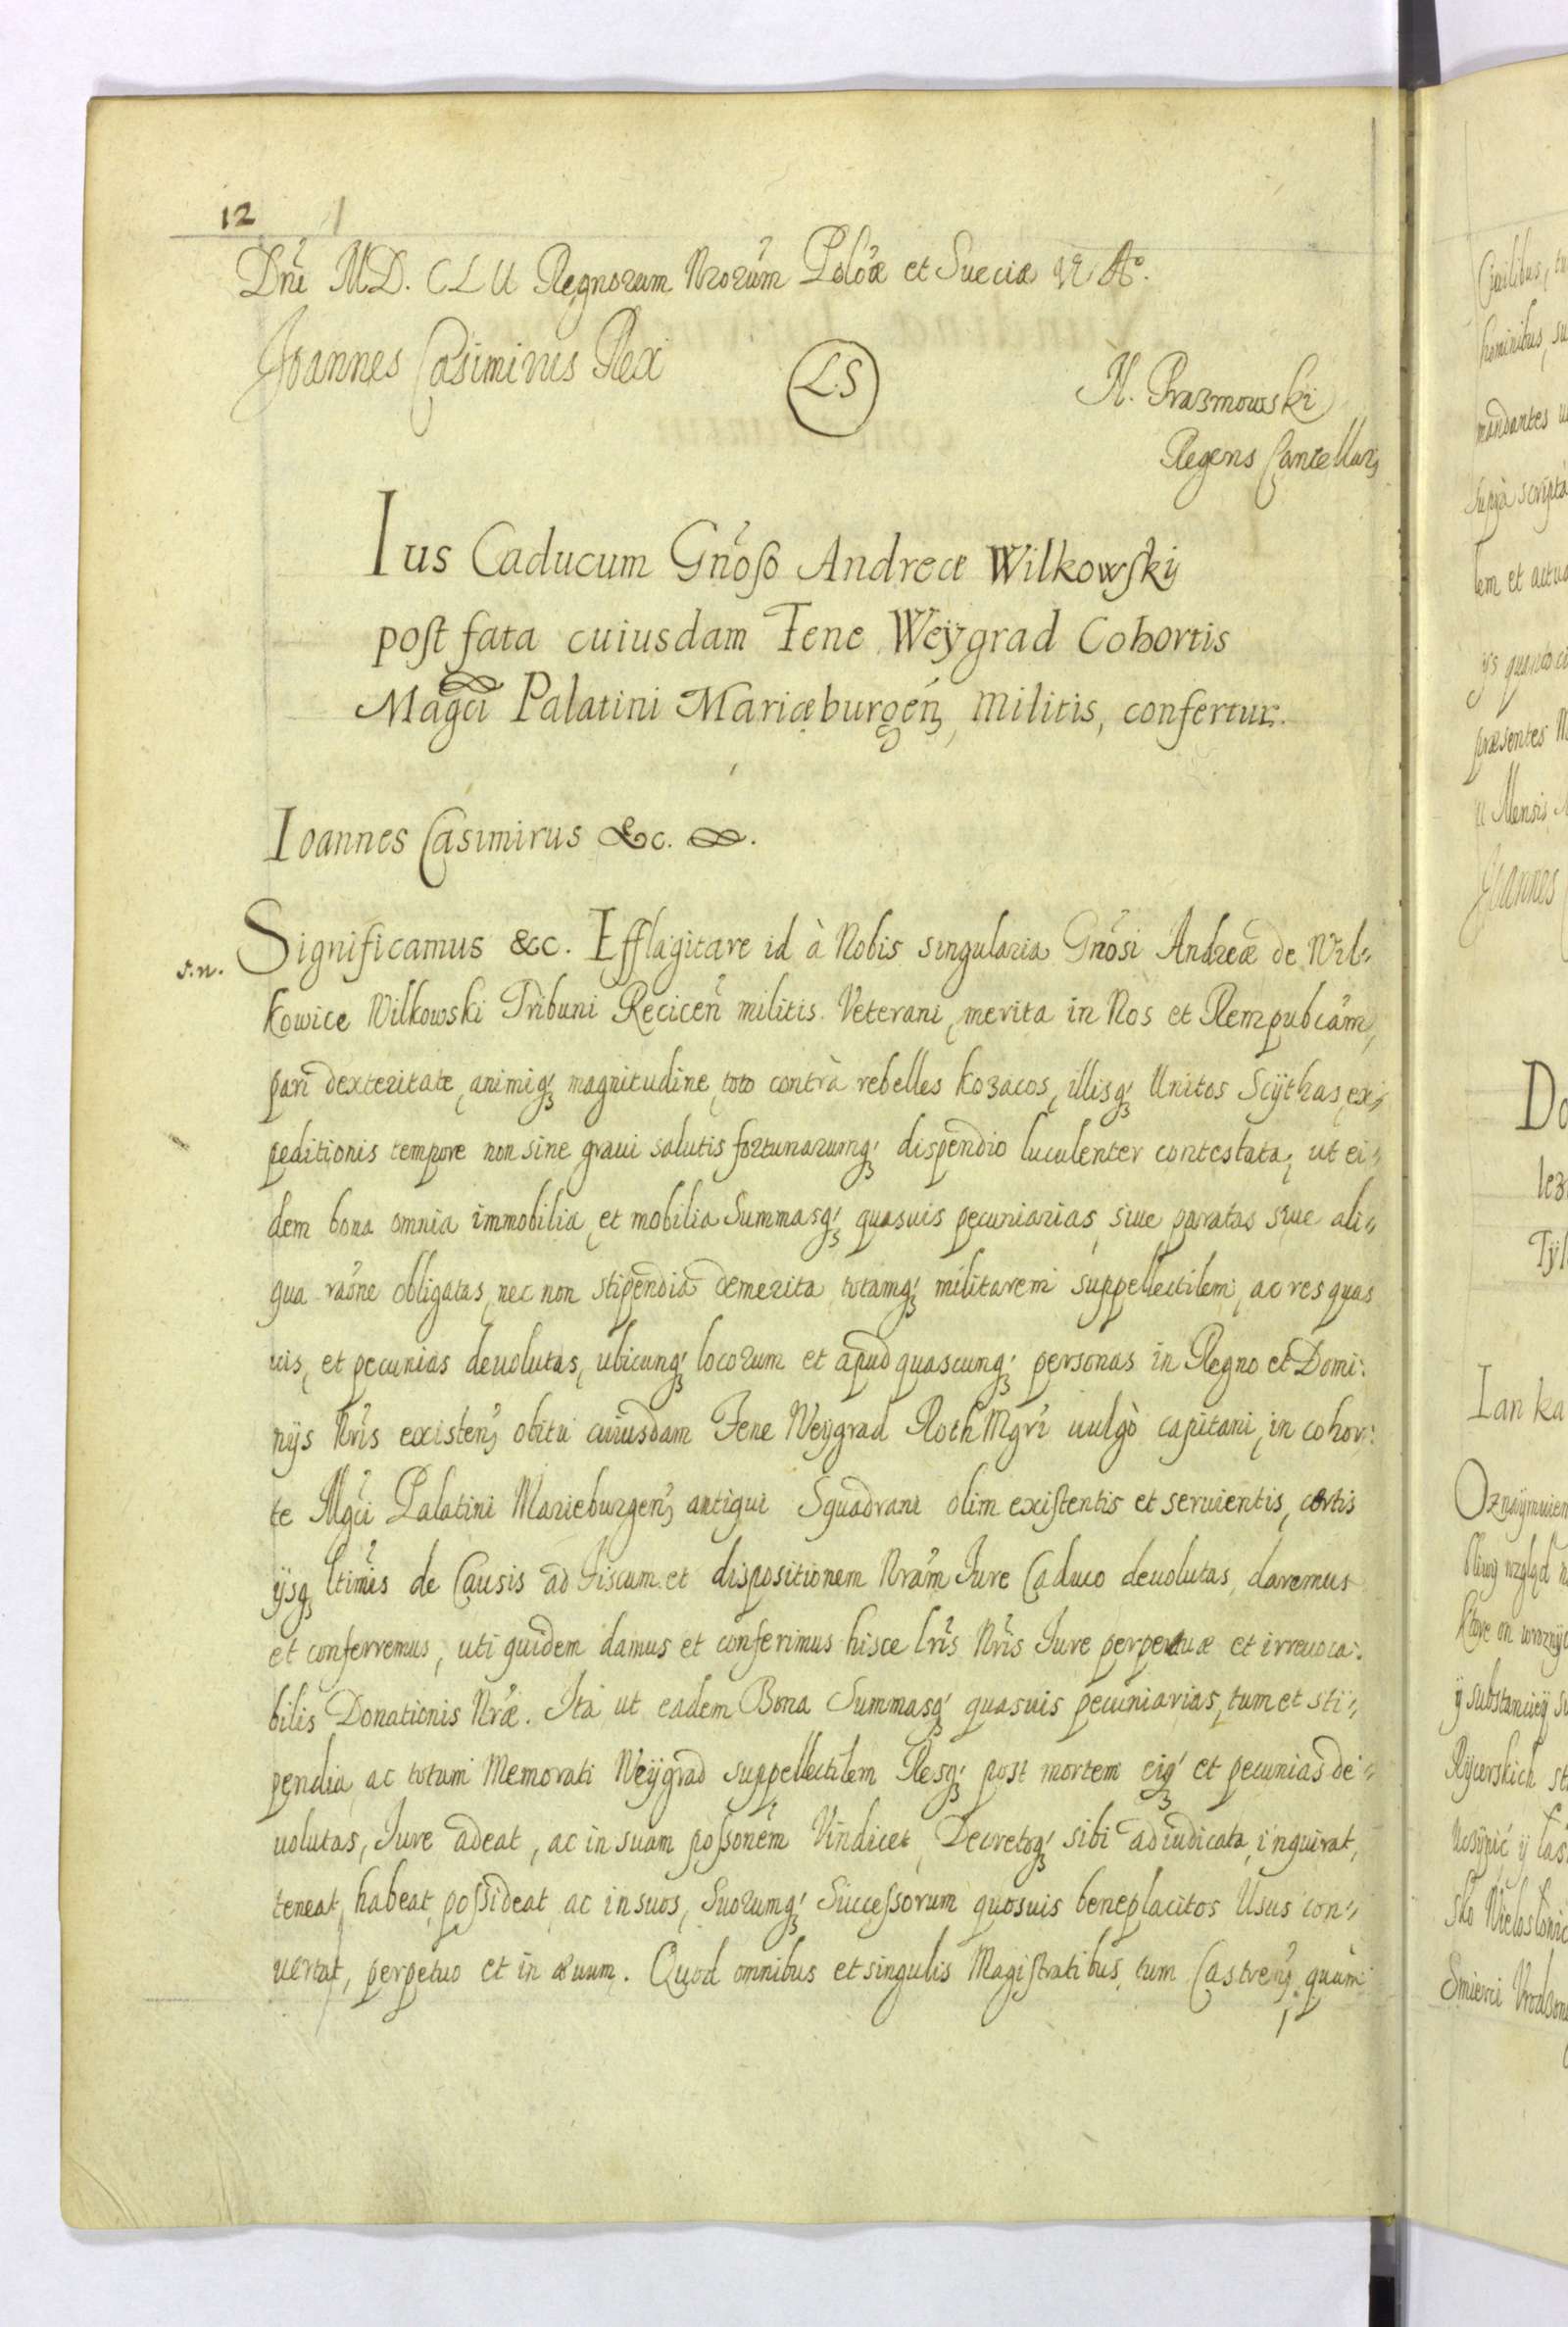 12
Dnĩ MD. CLII Regnorum Nrorum Polõæ et Sueciæ VI Aº.
Joannes Casimirus Rex
L.S
N. Prazmowski
Regens Cancellariæ
Ius Caducum Gñoso Andreæ Wilkowskij
post fata cuiusdam Iene Weÿgrad Cohortis
Magci Palatini Mariæburgeñ, militis, confertur.
Ioannes Casimirus &c.
s.n.
Significamus &c. Efflagitare id à Nobis singularia Gnõsi Andreæ de Wil„
kowice Wilkowski Tribuni Reciceñ militis Veterani, merita in Nos et Rempubcãm,
pari dexteritate, animiq₃ magnitudine, toto contrà rebelles kozacos, illisq₃ Unitos Scÿthas, ex„
peditionis tempore non sine graui salutis fortunarumq₃ dispendio luculenter contestata, ut ei„
dem bona omnia immobilia, et mobilia Summasq₃ quasuis pecuniarias, siue paratas siue ali„
qua raõne obligatas, nec non stipendia demerita totamq₃ militarem suppellectilem, ac res quas
uis, et pecunias deuolutas, ubicunq₃ locorum et apud quascunq₃ personas in Regno et Domi:
nÿs Nrĩs existeñ, obitu cuiusdam Iene Weÿgrad RothMgrĩ uulgò capitani, in cohor:
te Mgcĩ Palatini Marieburgeñ, antiqui Squadrani olim existentis et seruientis, certis
ÿsq₃ ltimĩs de Causis ad Fiscum et dispositionem Nrãm Iure Caduco deuolutas, daremus
et conferremus, uti quidem damus et conferimus hisce lrĩs Nrĩs Iure perpetuæ et irreuoca:
bilis Donationis Nræ. Ita ut eadem Bona Summasq₃ quasuis pecuniarias, tum et sti„
pendia, ac totam Memorati Weÿgrad suppellectilem Resq₃ post mortem eiq₃ et pecunias de„
uolutas, Iure adeat, ac in suam possonẽm Vindicet, Decretoq₃ sibi adiudicata, inquirat,
teneat, habeat, possideat, ac in suos, Suorumq₃ Successorum quosuis beneplacitos Usus con„
uertat, perpetuo et in æuum. Quod omnibus et singulis Magistratibus, tum Castreñ, quàm
Ciuilibus,
hominibus,
mandantes
suprà scripta
lem et
præsentes
Mensis
Joannes
Ian ka
Rÿcerskich